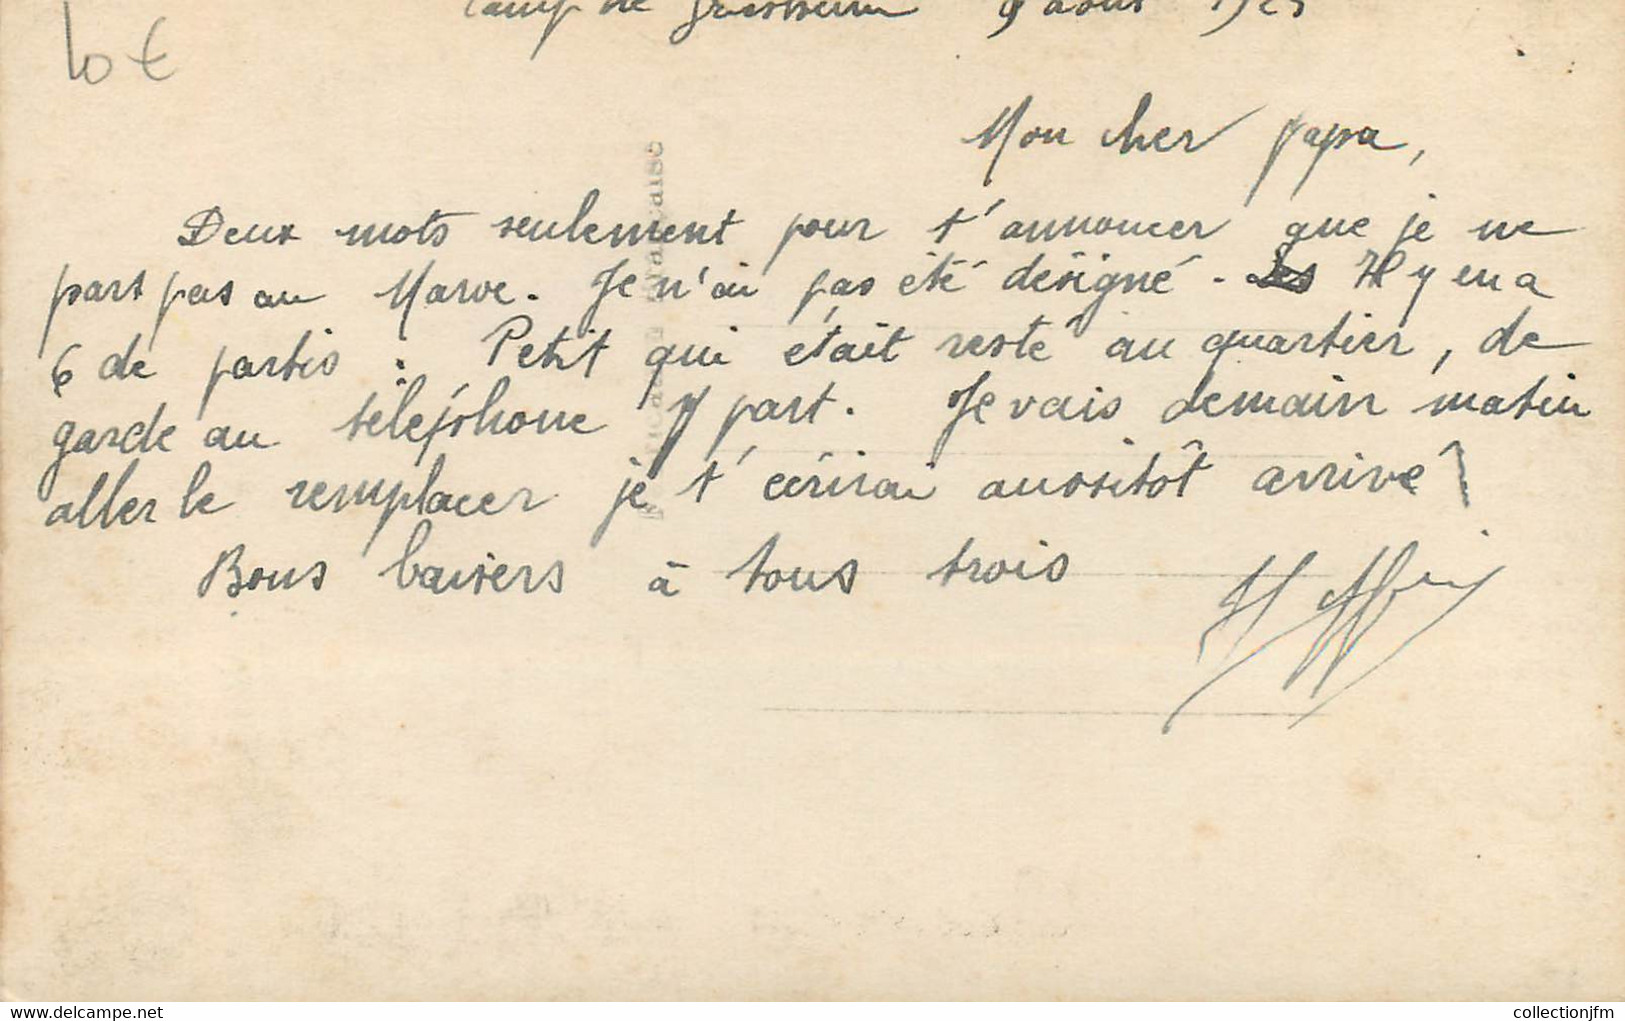 Camp de Griesheim 9 août 192
10 €
Mon cher papa,
Deux mots seulement pour t'annoncer que je ne
part pas au Maroc. Je n'ai pas été désigné - Il y en a
6 de partis : Petit qui était resté au quartier, de
garde au téléphone y part. Je vais demain matin
aller le remplacer je t'écrirai aussitôt arrivé
Bons baisers à tous trois
delcampe.net
collectionjfm